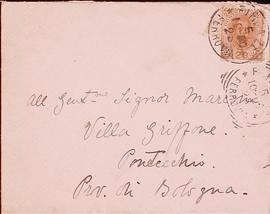 All Gent.mo Signor Marconi
Villa Griffone.
Pontecchio.
Prov. di Bologna.